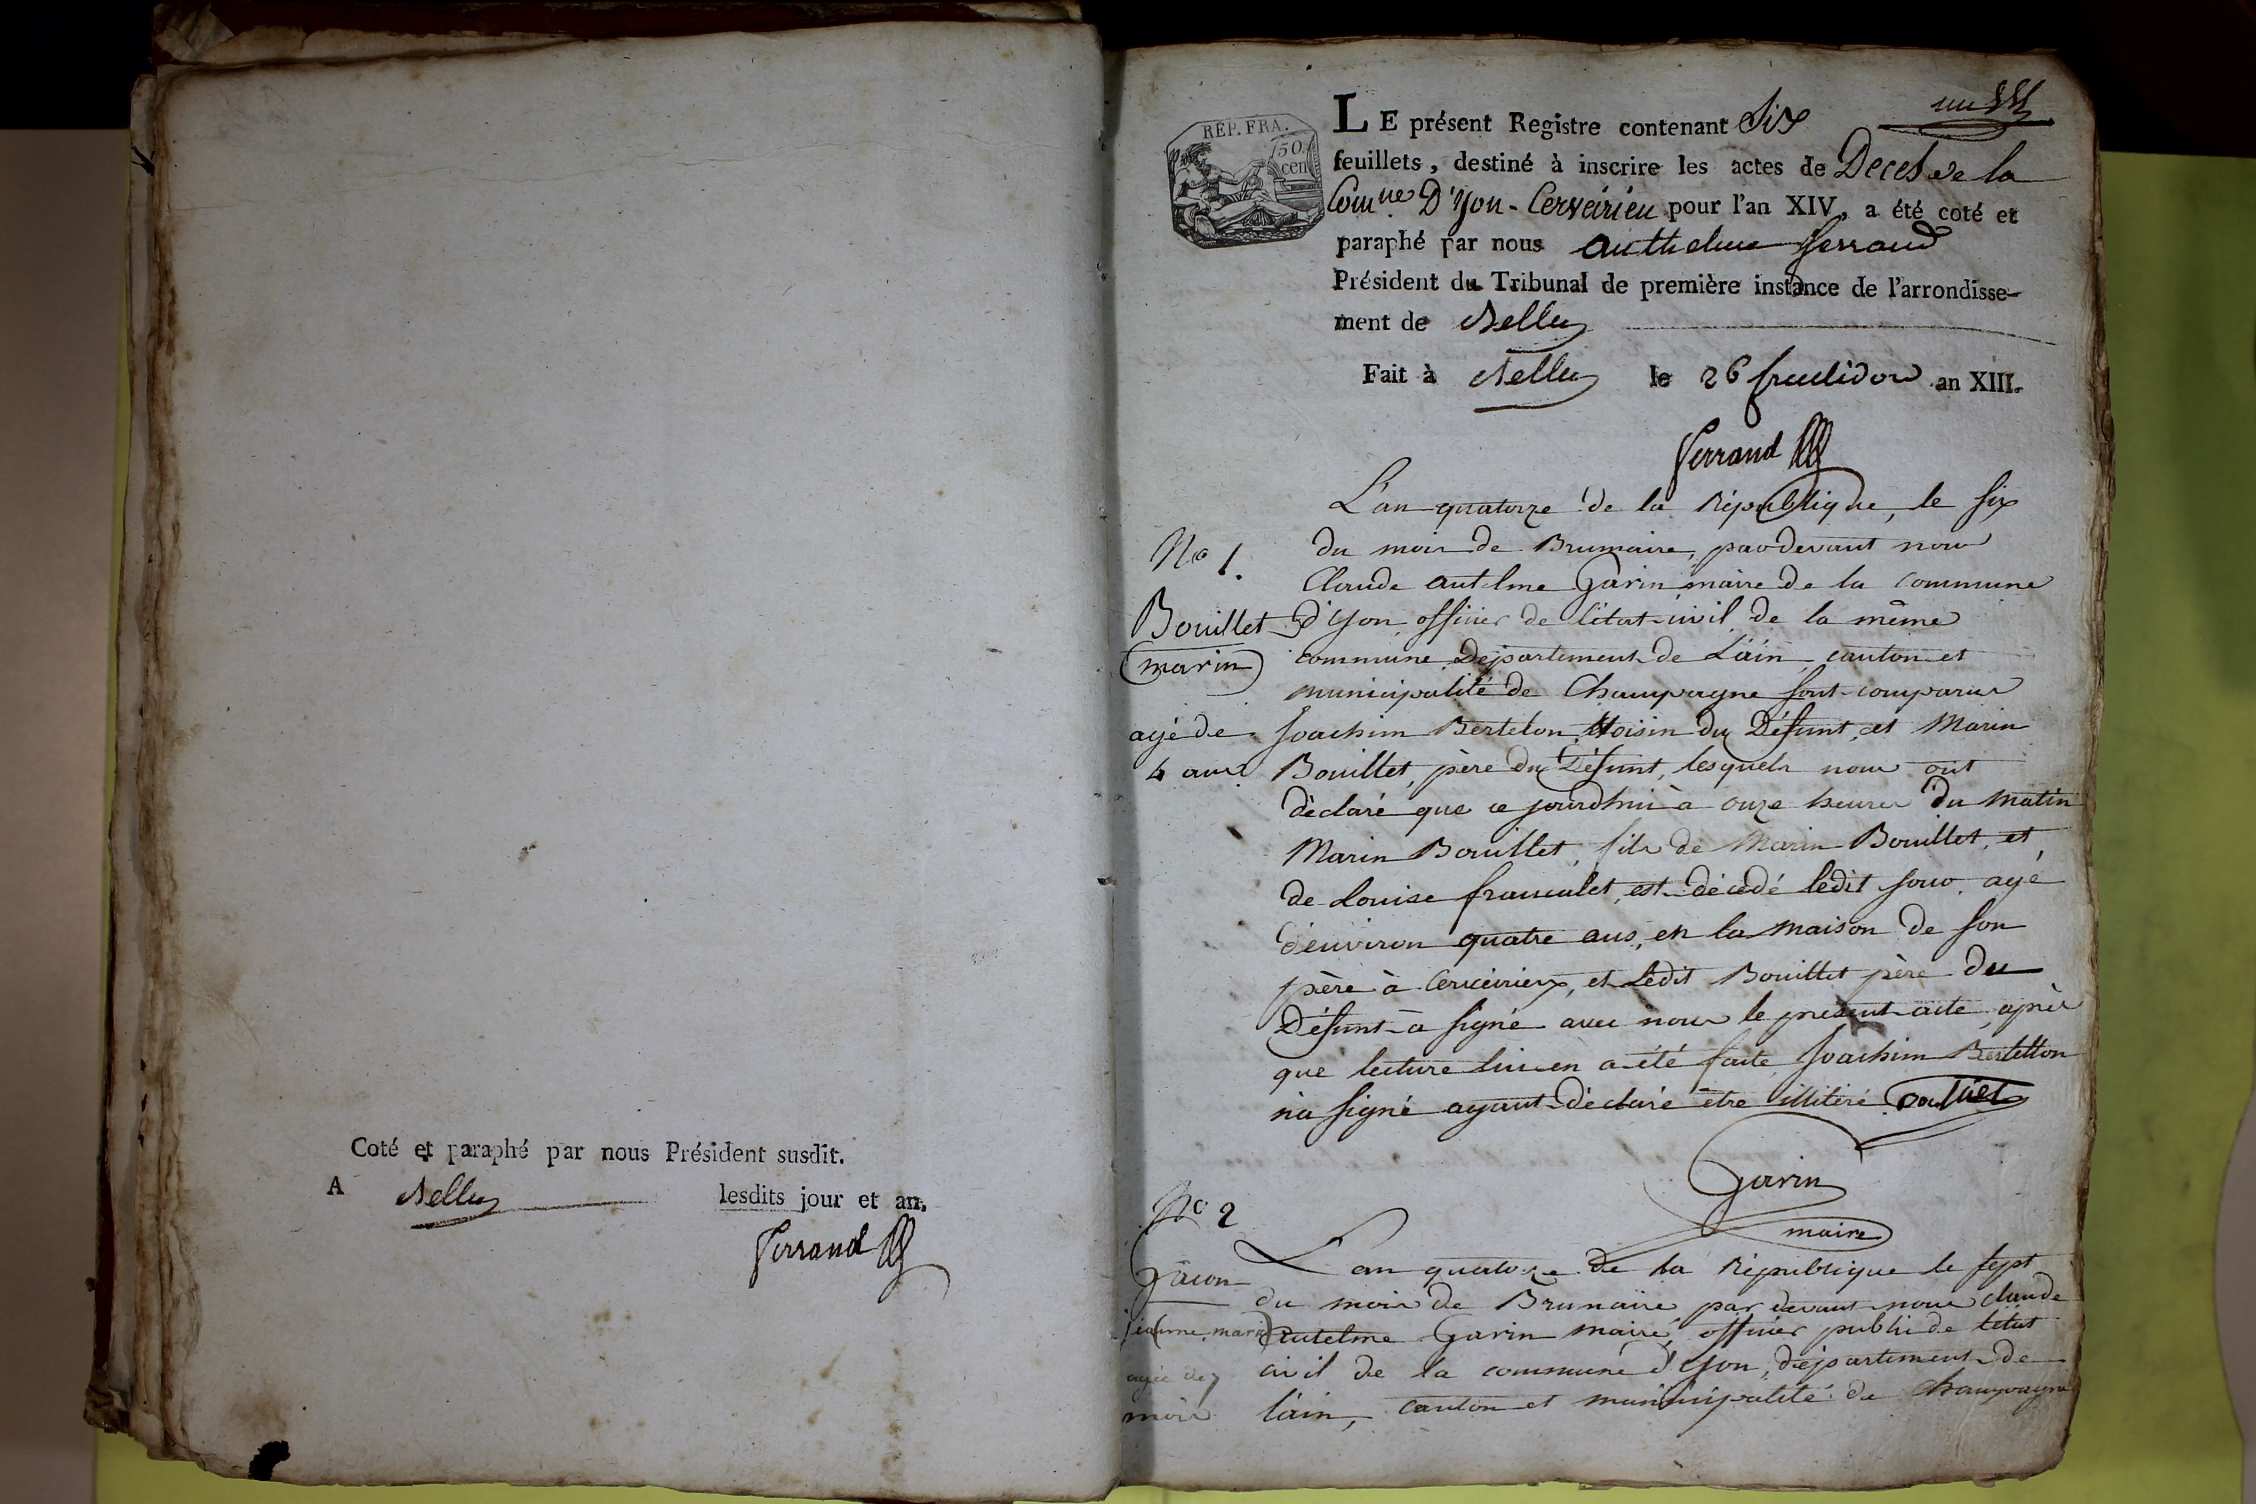 Coté et paraphé par nous Président susdit.
A Belley lesdits jour et an.
Ferrand
un
REP. FRA.
50
cen
LE présent Registre contenant Six
feuillets, destiné à inscrire les actes de Deces de la
Comne D'Yon-Cerveirieu pour l'an XIV, a été coté et
paraphé par nous Anthelme ferrand
Président du Tribunal de première instance de l'arrondisse-
ment de Belley
Fait à Belley le 26 fructidor an XIII.
Ferrand
No 1.
Bouillet
marin
agé de
4 ans
L'an quatorze de la République, le six
du mois de Brumaire, par devant nous
Claude antelme Garin maire de la commune
d'Yon, officier de l'état civil de la même
commune, Département de L'ain, canton et
municipalité de Champagne sont comparus
Joachim Bertelon, Voisin du Défunt, et Marin
Bouillet, père du Défunt, lesquels nous ont
déclaré que ce jourdhui à onze heures du matin
Marin Bouillet, fils de Marin Bouillet, et
de Louise francalet, est décédé ledit jour, agé
d'environ quatre ans, en la maison de son
père à Cerveirieux, et Ledit Bouillet père du
Défunt a signé avec nous le présent acte, après
que lecture lui en a été faite Joachim Bertellon
n'a signé ayant déclaré être illitéré
Garin
maire
No 2
Gâcon
marie
agée de 7
mois
L'an quatorze de la République le sept
du mois de Brumaire par devant nous claude
antelme Garin maire, officier public de l'état
civil de la commune d'Yon, département de
l'ain, canton et municipalité de Champagne